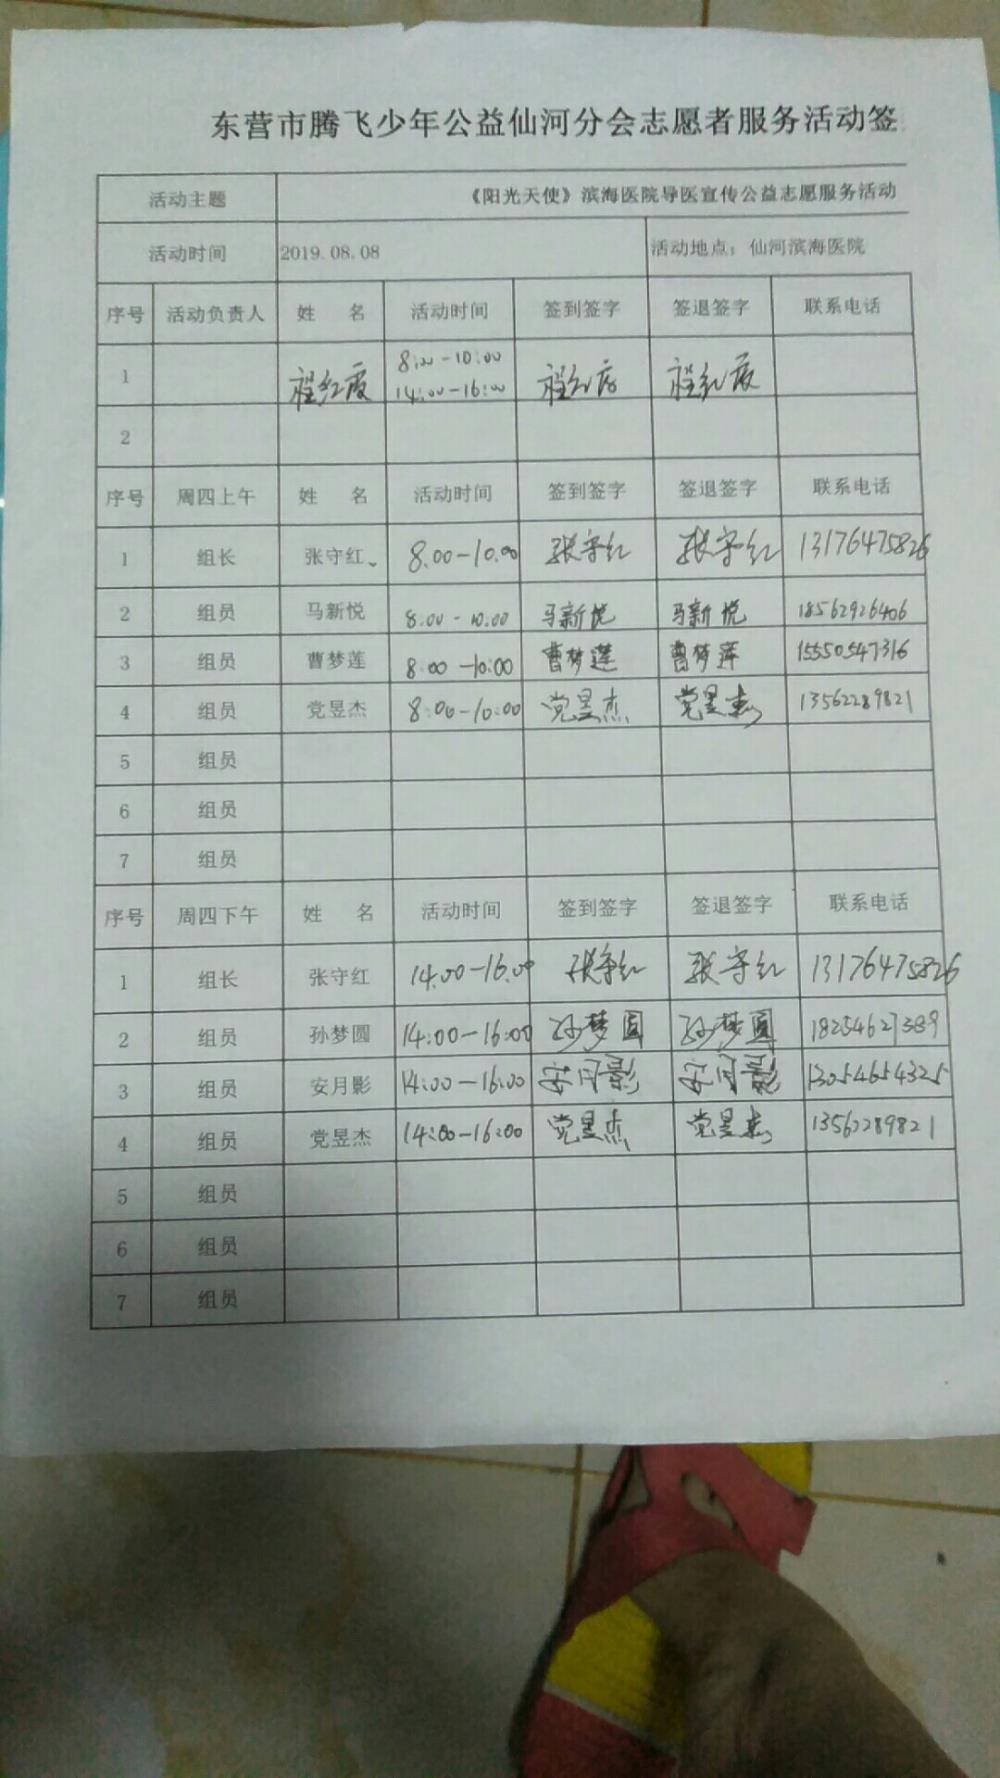 东营市腾飞少年公益仙河分会志愿者服务活动签
活动主题 《阳光天使》滨海医院导医宣传公益志愿服务活动
活动时间 2019.08.08 活动地点：仙河滨海医院
序号 活动负责人 姓 名 活动时间 签到签字 签退签字 联系电话
1 程红霞 8:00-10:00 14:00-16:00 程红霞 程红霞
2
序号 周四上午 姓 名 活动时间 签到签字 签退签字 联系电话
1 组长 张守红 8.00-10.00 张守红 张守红 13176475826
2 组员 马新悦 8:00-10:00 马新悦 马新悦 18562926406
3 组员 曹梦莲 8:00-10:00 曹梦莲 曹梦莲 15550547316
4 组员 党昱杰 8:00-10:00 党昱杰 党昱杰 13562289821
5 组员
6 组员
7 组员
序号 周四下午 姓 名 活动时间 签到签字 签退签字 联系电话
1 组长 张守红 14.00-16.00 张守红 张守红 13176475826
2 组员 孙梦圆 14:00-16:00 孙梦圆 孙梦圆 18254627389
3 组员 安月影 14:00-16:00 安月影 安月影 13054654325
4 组员 党昱杰 14:00-16:00 党昱杰 党昱杰 13562289821
5 组员
6 组员
7 组员